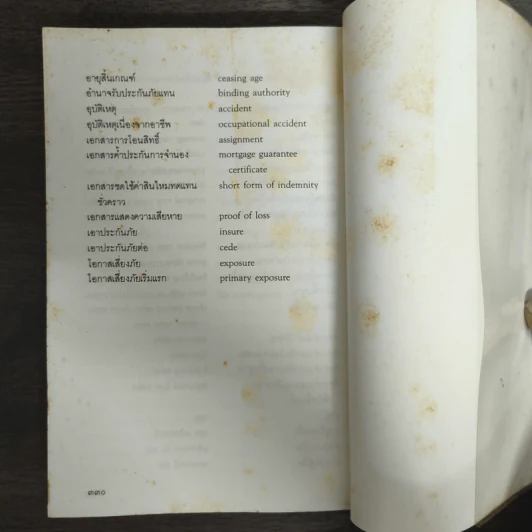 อายุสิ้นเกณฑ์ ceasing age
อำนาจรับประกันภัยแทน binding authority
อุบัติเหตุ accident
อุบัติเหตุเนื่องจากอาชีพ occupational accident
เอกสารการโอนสิทธิ์ assignment
เอกสารค้ำประกันการจำนอง mortgage guarantee
certificate
เอกสารชดใช้ค่าสินไหมทดแทน short form of indemnity
ชั่วคราว
เอกสารแสดงความเสียหาย proof of loss
เอาประกันภัย insure
เอาประกันภัยต่อ cede
โอกาสเสี่ยงภัย exposure
โอกาสเสี่ยงภัยเริ่มแรก primary exposure
๓๓๐